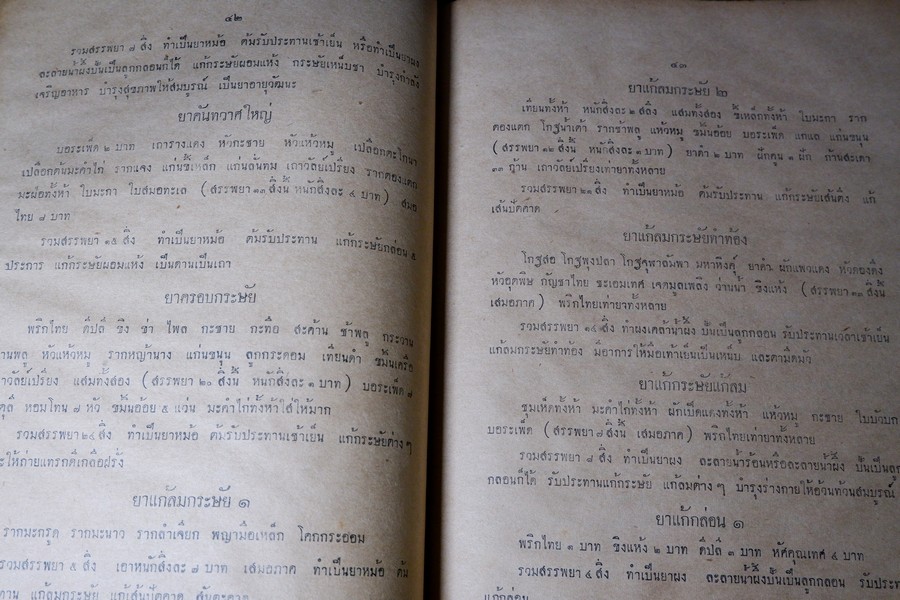 ๔๒
รวมสรรพยา ๘ สิ่ง ทำเป็นยาหม้อ ต้มรับประทานเช้าเย็น หรือทำเป็นยาผง
ละลายน้ำผึ้งปั้นเป็นลูกกลอนก็ได้ แก้กระษัยผอมแห้ง กระษัยเหน็บชา บำรุงกำลัง
เจริญอาหาร บำรุงสุขภาพให้สมบูรณ์ เป็นยาอายุวัฒนะ
ยาคันทวาศใหญ่
บอระเพ็ด ๒ บาท เถารางแดง หัวกะชาย หัวแห้วหมู เปลือกตะโกนา
เปลือกต้นมะคำไก่ รากแจง แก่นขี้เหล็ก แก่นลั่นทม เถาวัลย์เปรียง รากตองแตก
มะผ่อทั้งห้า ใบมะกา ใบสมอทะเล (สรรพยา ๑๓ สิ่งนี้ หนักสิ่งละ ๔ บาท) สมอ
ไทย ๘ บาท
รวมสรรพยา ๑๕ สิ่ง ทำเป็นยาหม้อ ต้มรับประทาน แก้กระษัยกล่อน ๕
ประการ แก้กระษัยผอมแห้ง เป็นดานเป็นเถา
ยาครอบกระษัย
พริกไทย ดีปลี ขิง ข่า ไพล กะชาย กะทือ สะค้าน ช้าพลู กระวาน
านพลู หัวแห้วหมู รากหญ้านาง แก่นขนุน ลูกกระดอม เทียนดำ ขมิ้นเครือ
าวัลย์เปรียง แสมทั้งสอง (สรรพยา ๒๐ สิ่งนี้ หนักสิ่งละ ๑ บาท) บอระเพ็ด ๗
ดุลี หอมโทน ๗ หัว ขมิ้นอ้อย ๕ แว่น มะคำไก่ทั้งห้าใส่ให้มาก
รวมสรรพยา ๒๔ สิ่ง ทำเป็นยาหม้อ ต้มรับประทานเช้าเย็น แก้กระษัยต่าง ๆ
ะให้ถ่ายแทรกดีเกลือฝรั่ง
ยาแก้ลมกระษัย ๑
รากมะกรูด รากมะนาว รากลำเจียก พญามือเหล็ก โคกกระออม
รวมสรรพยา ๕ สิ่ง เอาหนักสิ่งละ ๗ บาท เสมอภาค ทำเป็นยาหม้อ ต้ม
ทาน แก้ลมกระษัย แก้เส้นปัตคาด
๔๓
ยาแก้ลมกระษัย ๒
เทียนทั้งห้า หนักสิ่งละ ๒ สลึง แสมทั้งสอง ขี้เหล็กทั้งห้า ใบมะกา ราก
ตองแตก โกฐน้ำเต้า รากช้าพลู แห้วหมู ขมิ้นอ้อย บอระเพ็ด แกแล แก่นขนุน
(สรรพยา ๑๒ สิ่งนี้ หนักสิ่งละ ๑ บาท) ยาดำ ๒ บาท ฝักคูน ๑ ฝัก ก้านสะเดา
๓๓ ก้าน เถาวัลย์เปรียงเท่ายาทั้งหลาย
รวมสรรพยา ๒๑ สิ่ง ทำเป็นยาหม้อ ต้มรับประทาน แก้กระษัยเส้นตึง แก้
เส้นปัตคาด
ยาแก้ลมกระษัยทำท้อง
โกฐสอ โกฐพุงปลา โกฐจุฬาลัมพา มหาหิงคุ์ ยาดำ ผักแพวแดง หัวดองดึง
หัวอุตพิษ กัญชาไทย ชะเอมเทศ เจตมูลเพลิง ว่านน้ำ ขิงแห้ง (สรรพยา ๑๓ สิ่งนี้
เสมอภาค) พริกไทยเท่ายาทั้งหลาย
รวมสรรพยา ๑๔ สิ่ง ทำผงเคล้าน้ำผึ้ง ปั้นเป็นลูกกลอน รับประทานเวลาเช้าเย็น
แก้ลมกระษัยทำท้อง มีอาการให้มือเท้าเย็นเป็นเหน็บ และตามืดมัว
ยาแก้กระษัยแก้ลม
ชุมเห็ดทั้งห้า มะคำไก่ทั้งห้า ผักเป็ดแดงทั้งห้า แห้วหมู กะชาย ใบมัวบก
บอระเพ็ด (สรรพยา ๗ สิ่งนี้ เสมอภาค) พริกไทยเท่ายาทั้งหลาย
รวมสรรพยา ๘ สิ่ง ทำเป็นยาผง ละลายน้ำร้อนหรือละลายน้ำผึ้ง ปั้นเป็นลูก
กลอนก็ได้ รับประทานแก้กระษัย แก้ลมต่าง ๆ บำรุงร่างกายให้อ้วนท้วนสมบูรณ์
ยาแก้กล่อน ๑
พริกไทย ๑ บาท ขิงแห้ง ๒ บาท ดีปลี ๓ บาท หัศคุณเทศ ๔ บาท
รวมสรรพยา ๔ สิ่ง ทำเป็นยาผง ละลายน้ำผึ้งปั้นเป็นลูกกลอน รับประ
แก้กล่อน